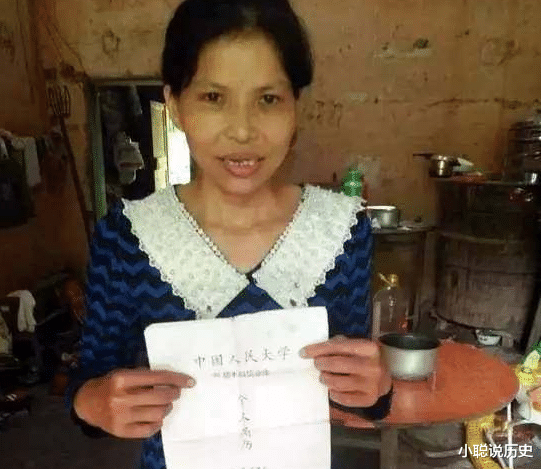 中国人民大学
个人简历
小聪说历史